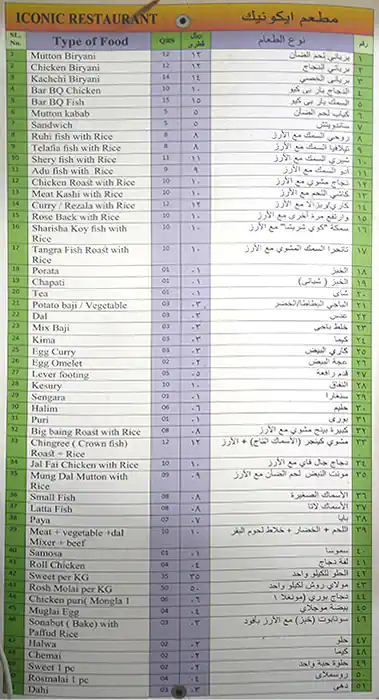 ICONIC RESTAURANT مطعم ايكونيك
SL. No. Type of Food QRS ريال قطري نوع الطعام رقم
1 Mutton Biryani 12 ١٢ برياني لحم الضأن ١
2 Chicken Biryani 12 ١٢ برياني الدجاج ٢
3 Kachchi Biryani 14 ١٤ برياني الخصي ٣
4 Bar BQ Chicken 10 ١٠ الدجاج بار بي كيو ٤
5 Bar BQ Fish 15 ١٥ السمك بار بي كيو ٥
6 Mutton kabab 5 ٥ كباب لحم الضأن ٦
7 Sandwich 5 ٥ ساندويتش ٧
8 Ruhi fish with Rice 8 ٨ روحي السمك مع الأرز ٨
9 Telafia fish with Rice 8 ٨ تيلافيا السمك مع الأرز ٩
10 Shery fish with Rice 11 ١١ شيري السمك مع الأرز ١٠
11 Adu fish with Rice 9 ٩ أدو السمك مع الأرز ١١
12 Chicken Roast with Rice 10 ١٠ دجاج مشوي مع الأرز ١٢
13 Meat Kashi with Rice 10 ١٠ كاشي اللحم مع الأرز ١٣
14 Curry / Rezala with Rice 12 ١٢ كاري/ريزالا مع الأرز ١٤
15 Rose Back with Rice 10 ١٠ وارتفع مرة أخرى مع الأرز ١٥
16 Sharisha Koy fish with Rice 10 ١٠ سمكة "كوي شريشا" مع الأرز ١٦
17 Tangra Fish Roast with Rice 10 ١٠ تانجرا السمك المشوي مع الأرز ١٧
18 Porata 01 ٠١ الخبز ١٨
19 Chapati 01 ٠١ الخبز ( شباتى ) ١٩
20 Tea 01 ٠١ شاى ٢٠
21 Potato baji / Vegetable 03 ٠٣ الباجي البطاطا/الخضر ٢١
22 Dal 03 ٠٣ عدس ٢٢
23 Mix Baji 03 ٠٣ خلط باجى ٢٣
24 Kima 03 ٠٣ كيما ٢٤
25 Egg Curry 03 ٠٣ كاري البيض ٢٥
26 Egg Omelet 02 ٠٢ عجة البيض ٢٦
27 Lever footing 05 ٠٥ قدم رافعة ٢٧
28 Kesury 10 ١٠ ٢٨
29 Sengara 01 ٠١ سنغارا ٢٩
30 Halim 06 ٠٦ حليم ٣٠
31 Puri 01 ٠١ بورى ٣١
32 Big baing Roast with Rice 08 ٠٨ كبيرة بينج مشوي مع الأرز ٣٢
33 Chingree ( Crown fish) Roast + Rice 12 ١٢ مشوي كينجر (الأسماك التاج) + الأرز ٣٣
34 Jal Fai Chicken with Rice 10 ١٠ دجاج جال فاي مع الأرز ٣٤
35 Mung Dal Mutton with Rice 09 ٠٩ ٣٥
36 Small Fish 08 ٠٨ الأسماك الصغيرة ٣٦
37 Latta Fish 08 ٠٨ الأسماك لاتا ٣٧
38 Paya 07 ٠٧ بايا ٣٨
39 Meat + vegetable +dal Mixer + beef 10 ١٠ اللحم + الخضار + خلاط لحوم البقر ٣٩
40 Samosa 01 ٠١ سموسا ٤٠
41 Roll Chicken 04 ٠٤ لفة دجاج ٤١
42 Sweet per KG 35 ٣٥ الحلو للكيلو واحد ٤٢
43 Rosh Molai per KG 50 ٥٠ مولاي روش لكيلو واحد ٤٣
44 Chicken puri( Mongla 1 06 ٠٦ دجاج بوري (مونغلا ١ ٤٤
45 Muglai Egg 04 ٠٤ بيضة موجلاي ٤٥
46 Sonabut ( Bake) with Paffud Rice 03 ٠٣ سونابوت (خبز) مع الأرز بافود ٤٦
47 Halwa 02 ٠٢ حلو ٤٧
48 Chemai 02 ٠٢ كيما ٤٨
49 Sweet 1 pc 02 ٠٢ حلوة حبة واحد ٤٩
50 Rosmalai 1 pc 04 ٠٤ روسملاى ٥٠
51 Dahi 03 ٠٣ دهى ٥١